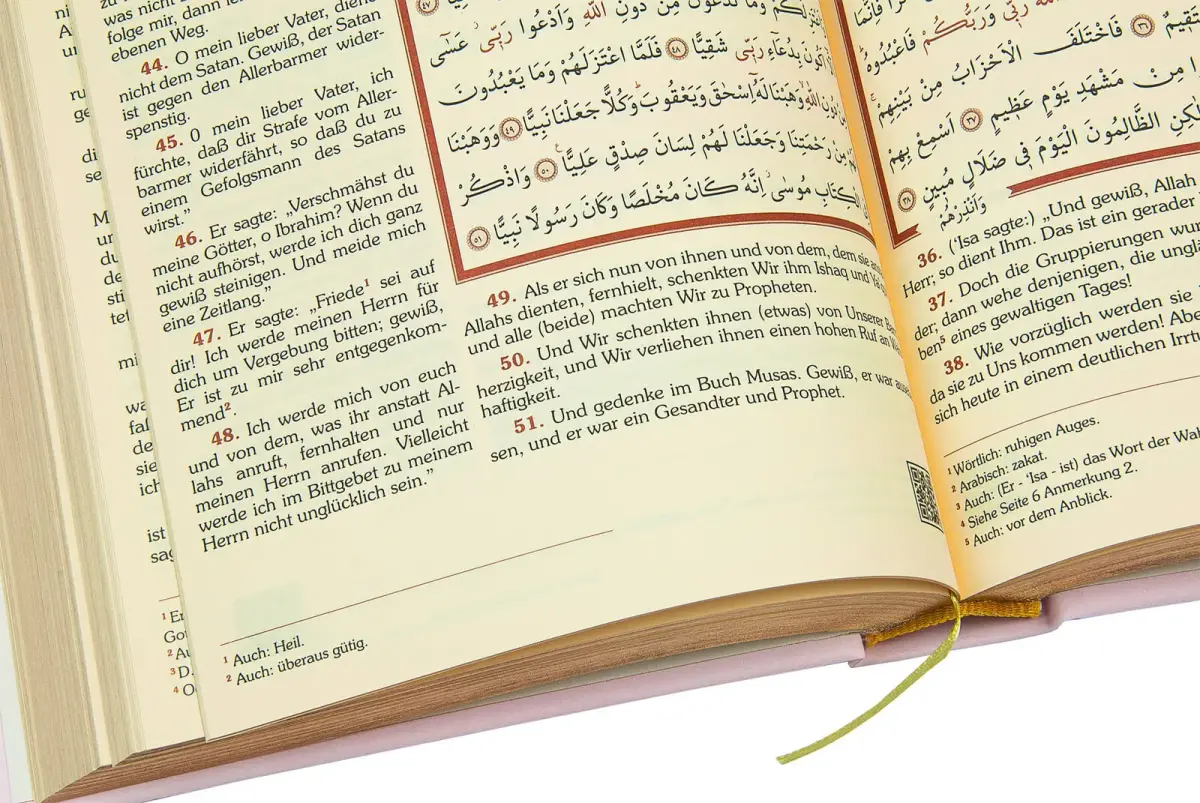 was nicht
folge mir, dann
ebenen Weg.
44. O mein lieber Vater, diene
nicht dem Satan. Gewiß, der Satan
ist gegen den Allerbarmer wider-
spenstig.
45. O mein lieber Vater, ich
fürchte, daß dir Strafe vom Aller-
barmer widerfährt, so daß du zu
einem Gefolgsmann des Satans
wirst.”
46. Er sagte: „Verschmähst du
meine Götter, o Ibrahim? Wenn du
nicht aufhörst, werde ich dich ganz
gewiß steinigen. Und meide mich
eine Zeitlang.”
47. Er sagte: „Friede¹ sei auf
dir! Ich werde meinen Herrn für
dich um Vergebung bitten; gewiß,
Er ist zu mir sehr entgegenkom-
mend².
48. Ich werde mich von euch
und von dem, was ihr anstatt Al-
lahs anruft, fernhalten und nur
meinen Herrn anrufen. Vielleicht
werde ich im Bittgebet zu meinem
Herrn nicht unglücklich sein.”
¹ Auch: Heil.
² Auch: überaus gütig.
وَمَا تَدْعُونَ مِنْ دُونِ اللّٰهِ وَاَدْعُوا رَبّ۪ي عَسٰٓى
اَكُونَ بِدُعَٓاءِ رَبّ۪ي شَقِيًّا ٤٨ فَلَمَّا اعْتَزَلَهُمْ وَمَا يَعْبُدُونَ
دُونِ اللّٰهِ وَهَبْنَا لَهُٓ اِسْحٰقَ وَيَعْقُوبَ وَكُلًّا جَعَلْنَا نَبِيًّا ٤٩ وَوَهَبْنَا
مِنْ رَحْمَتِنَا وَجَعَلْنَا لَهُمْ لِسَانَ صِدْقٍ عَلِيًّا ٥٠ وَاذْكُرْ
الْكِتَابِ مُوسٰٓى اِنَّهُ كَانَ مُخْلَصًا وَكَانَ رَسُولًا نَبِيًّا ٥١
49. Als er sich nun von ihnen und von dem, dem sie
Allahs dienten, fernhielt, schenkten Wir ihm Ishaq und
und alle (beide) machten Wir zu Propheten.
50. Und Wir schenkten ihnen (etwas) von Unserer
herzigkeit, und Wir verliehen ihnen einen hohen Ruf an
haftigkeit.
51. Und gedenke im Buch Musas. Gewiß, er war
sen, und er war ein Gesandter und Prophet.
رَبّ۪ي وَرَبُّكُمْ فَاعْبُدُوهُ
٣٦ فَاخْتَلَفَ الْاَحْزَابُ مِنْ بَيْنِهِمْ
مِنْ مَشْهَدِ يَوْمٍ عَظ۪يمٍ ٣٧ اَسْمِعْ بِهِمْ
الظَّالِمُونَ الْيَوْمَ ف۪ي ضَلَالٍ مُب۪ينٍ ٣٨
وَاَنْذِرْهُمْ
36. (‘Isa sagte:) „Und gewiß, Allah
Herr; so dient Ihm. Das ist ein gerader
37. Doch die Gruppierungen
der; dann wehe denjenigen, die
ben⁵ eines gewaltigen Tages!
38. Wie vorzüglich werden sie
da sie zu Uns kommen werden!
sich heute in einem deutlichen
¹ Wörtlich: ruhigen Auges.
² Arabisch: zakat.
³ Auch: (Er - ‘Isa - ist) das Wort der
⁴ Siehe Seite 6 Anmerkung 2.
⁵ Auch: vor dem Anblick.